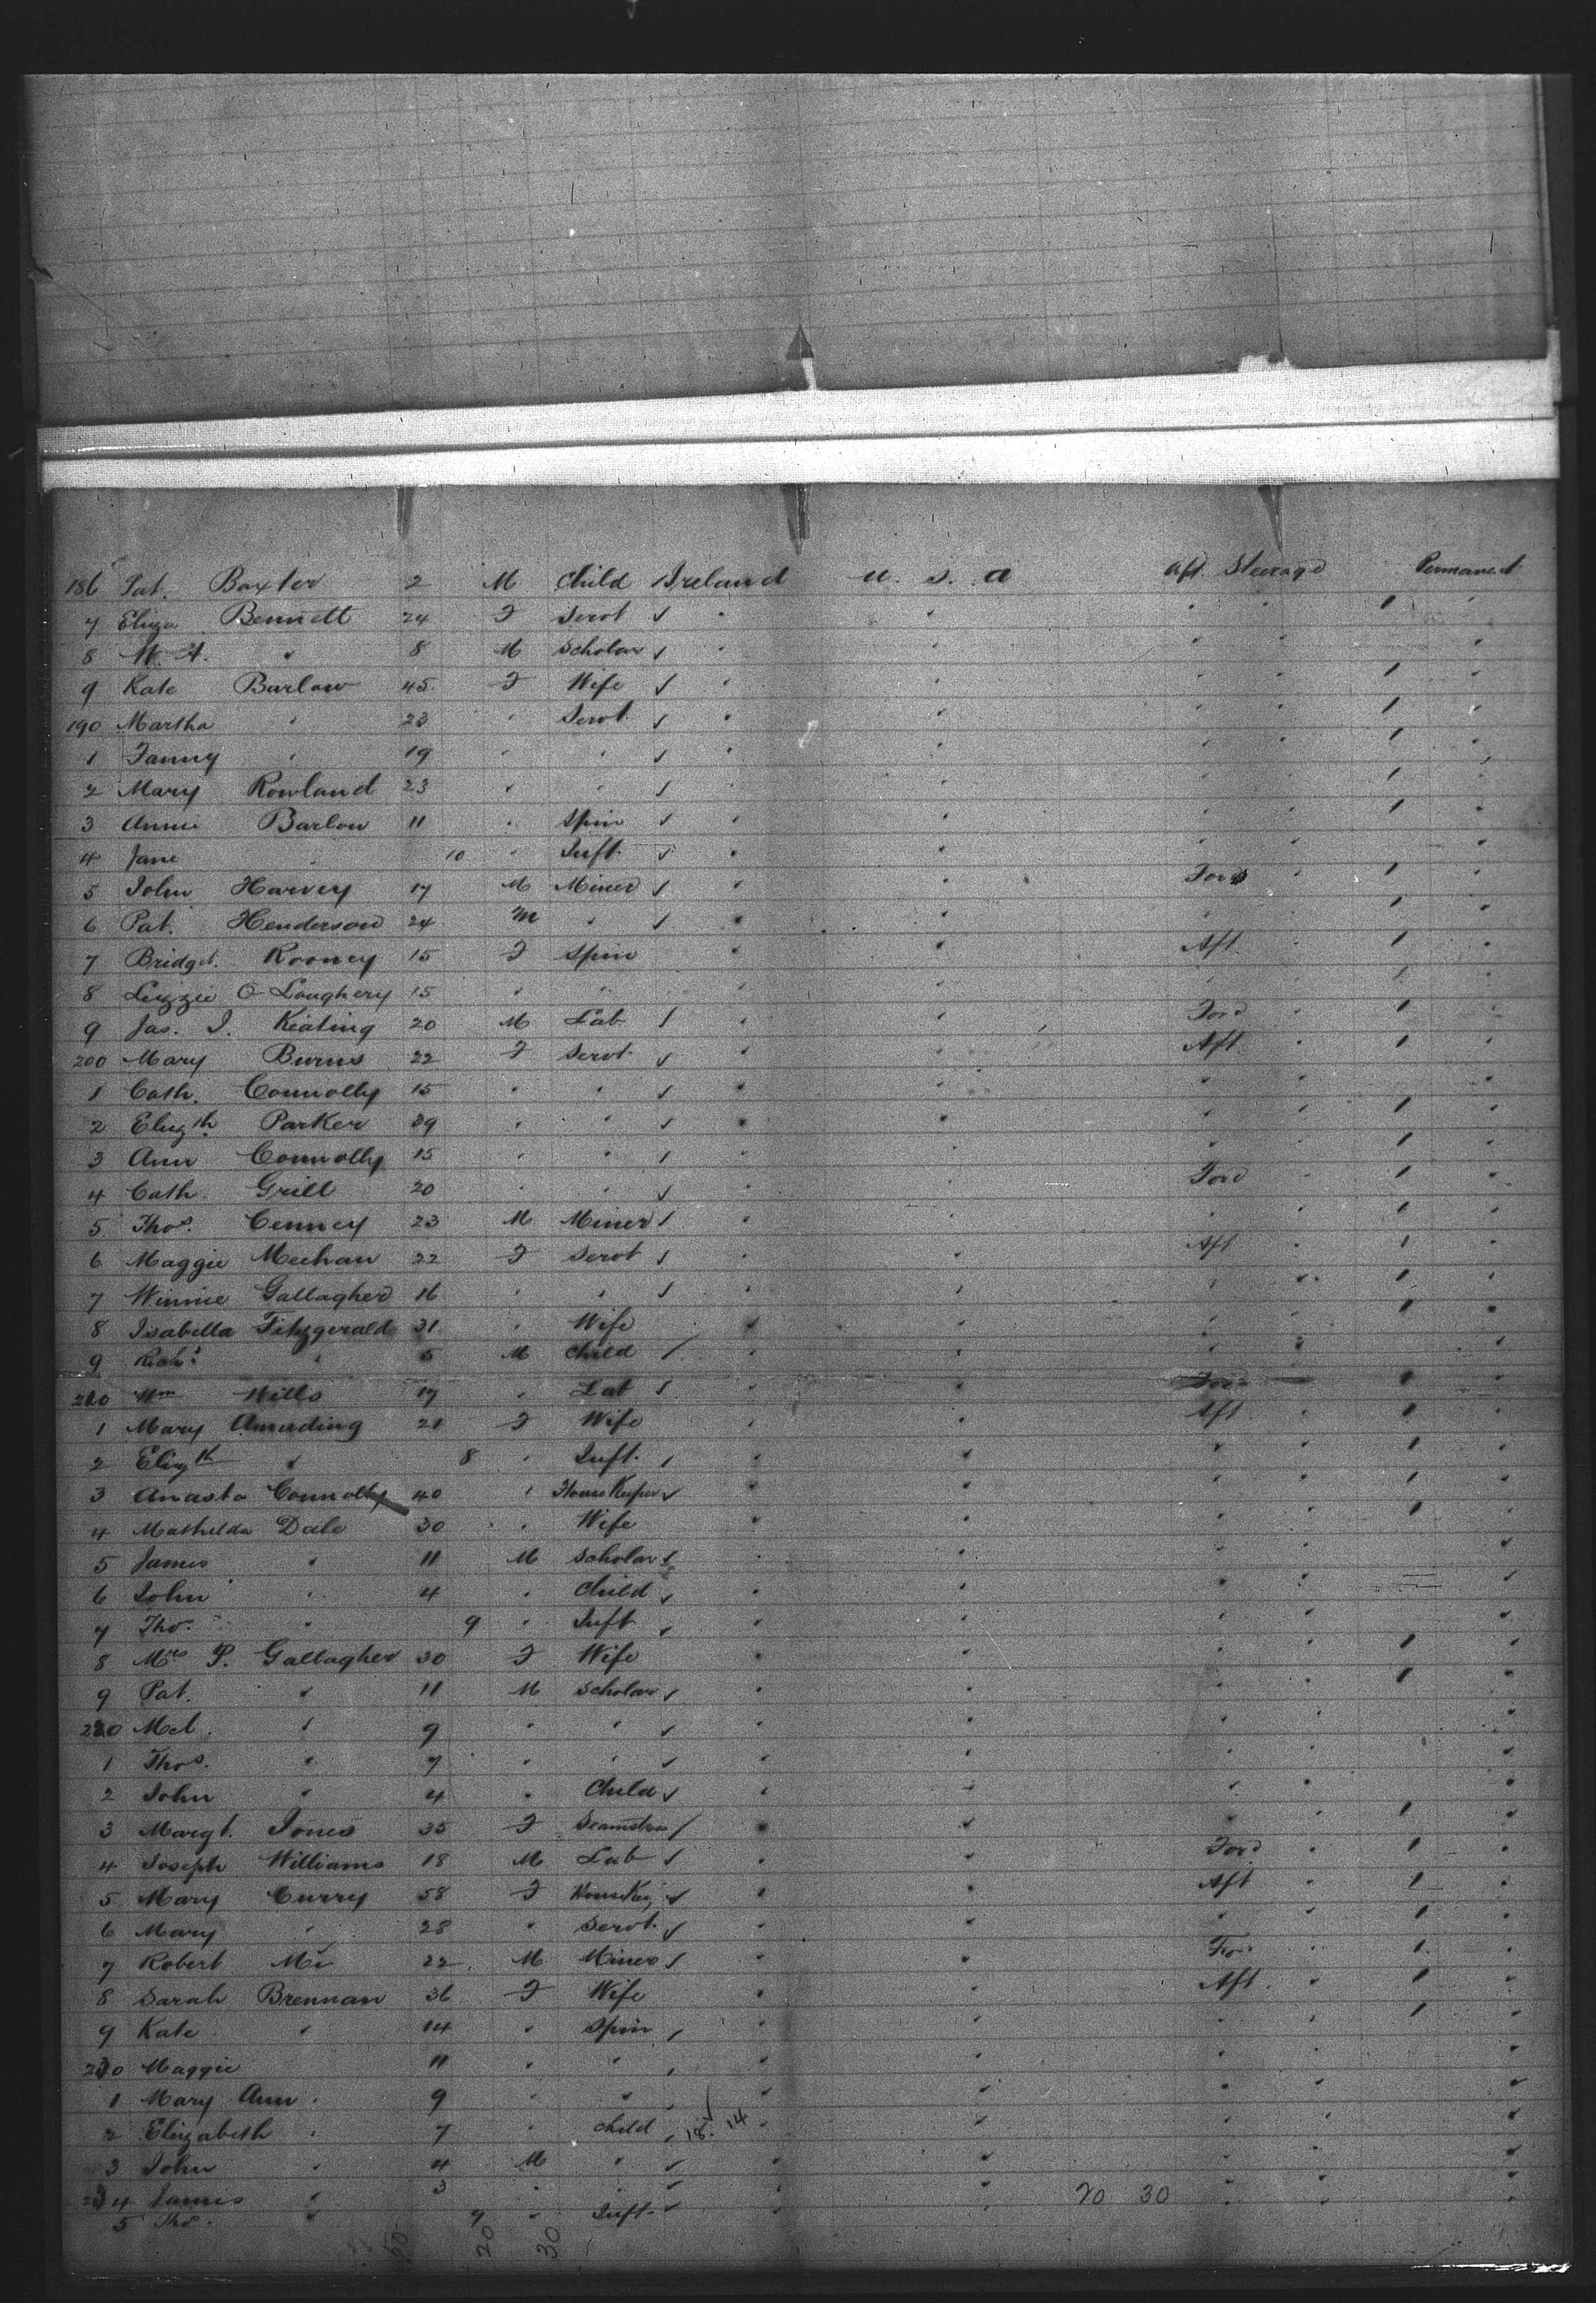 186 Pat. Baxter 2 M Child Ireland U. S. A Aft. Steerage Permanent
7 Eliza Bennett 24 F Servt ✓ " " " " 1 "
8 W. A. " 8 M Scholar ✓ " " " " "
9 Kate Barlow 45 F Wife ✓ " " " " 1 "
190 Martha " 23 " Servt ✓ " " " " 1 "
1 Fanny " 19 " " ✓ " " " " 1 "
2 Mary Rowland 23 " " ✓ " " " " 1 "
3 Annie Barlow 11 " Spin ✓ " " " " 1 "
4 Jane " 10 " Inft ✓ " " " " "
5 John Harvey 17 M Miner ✓ " " Ford " 1 "
6 Pat. Henderson 24 M " ✓ " " " " 1 "
7 Bridgt. Rooney 15 F Spin " " Aft " 1 "
8 Lizzie O Loughery 15 " " " " " " 1 "
9 Jas. J. Keating 20 M Lab ✓ " " Ford " 1 "
200 Mary Burns 22 F Servt ✓ " " Aft " 1 "
1 Cath. Connolly 15 " " ✓ " " " " "
2 Elizth Parker 39 " " ✓ " " " " 1 "
3 Ann Connolly 15 " " ✓ " " " " 1 "
4 Cath. Grill 20 " " ✓ " " Ford " 1 "
5 Thos. Cenney 23 M Miner ✓ " " " " 1 "
6 Maggie Meehan 22 F Servt ✓ " " Aft " 1 "
7 Winnie Gallagher 16 " " ✓ " " " " 1 "
8 Isabella Fitzgerald 31 " Wife " " " " 1 "
9 Richd " 5 M Child ✓ " " " " "
210 Wm Wills 17 " Lab ✓ " " Ford 1 "
1 Mary 21 F Wife " " Aft " 1 "
2 Elizth " 8 " Inft ✓ " " " " 1 "
3 Anasta Connolly 40 " House Keeper ✓ " " " " 1 "
4 Mathilda Dale 30 " Wife " " " " 1 "
5 James " 11 M Scholar ✓ " " " " "
6 John " 4 " Child ✓ " " " " "
7 Tho. " 9 " Inft ✓ " " " " "
8 Mrs P. Gallagher 30 F Wife " " " " 1 "
9 Pat. " 11 M Scholar ✓ " " " " 1 "
220 Mcl. " 9 " " ✓ " " " " "
1 Thos. " 7 " " ✓ " " " " "
2 John " 4 " Child ✓ " " " " "
3 Margt. Jones 35 F Seamstress ✓ " " " " 1 "
4 Joseph Williams 18 M Lab ✓ " " Ford " 1 "
5 Mary Curry 58 F ✓ " " Aft " 1 "
6 Mary " 28 " Servt. ✓ " " " " 1 "
7 Robert 22 M Miner ✓ " " Ford " 1 "
8 Sarah Brennan 36 F Wife " " Aft " 1 "
9 Kate " 14 " Spin ✓ " " " " 1 "
230 Maggie 11 " " ✓ " " " " "
1 Mary Ann " 9 " " ✓ " " " " "
2 Elizabeth " 7 " Child ✓ 18 14 " " " " "
3 John " 4 M " ✓ " " " " "
234 James " 3 " " ✓ " " 20 30 " " "
5 Tho. " 9 " Inft ✓ " " " " "
50 20 30